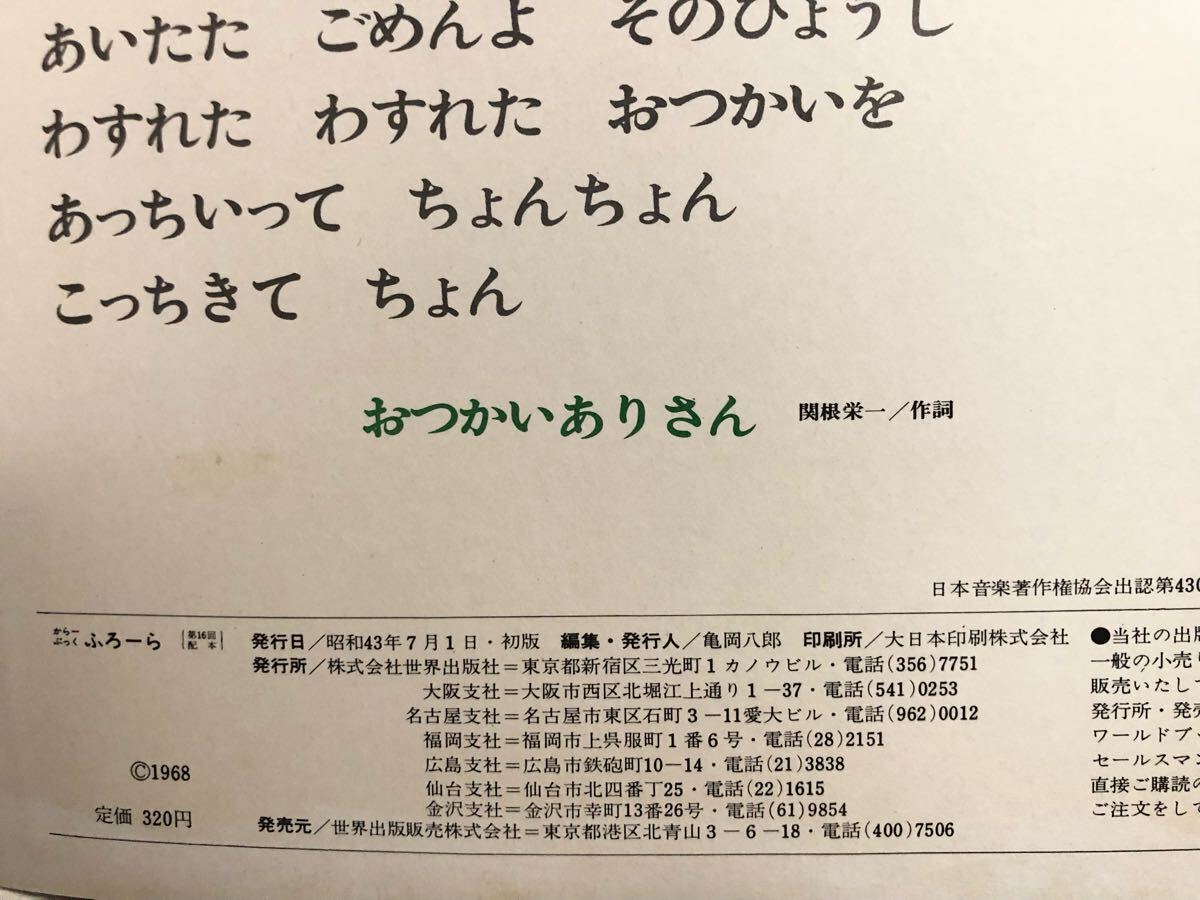 あいたた　ごめんよ　そのひょうし
わすれた　わすれた　おつかいを
あっちいって　ちょんちょん
こっちきて　ちょん
おつかいありさん　関根栄一／作詞
日本音楽著作権協会出認第430
からーぶっく ふろーら [第16回配本] 発行日／昭和43年7月1日・初版　編集・発行人／亀岡八郎　印刷所／大日本印刷株式会社
発行所／株式会社世界出版社＝東京都新宿区三光町1 カノウビル・電話(356)7751
大阪支社＝大阪市西区北堀江上通り1－37・電話(541)0253
名古屋支社＝名古屋市東区石町3－11愛大ビル・電話(962)0012
福岡支社＝福岡市上呉服町1番6号・電話(28)2151
広島支社＝広島市鉄砲町10－14・電話(21)3838
仙台支社＝仙台市北四番丁25・電話(22)1615
金沢支社＝金沢市幸町13番26号・電話(61)9854
発売元／世界出版販売株式会社＝東京都港区北青山3－6－18・電話(400)7506
©1968
定価 320円
●当社の出版
一般の小売り
販売いたして
発行所・発売
ワールドブッ
セールスマン
直接ご購読の
ご注文をして